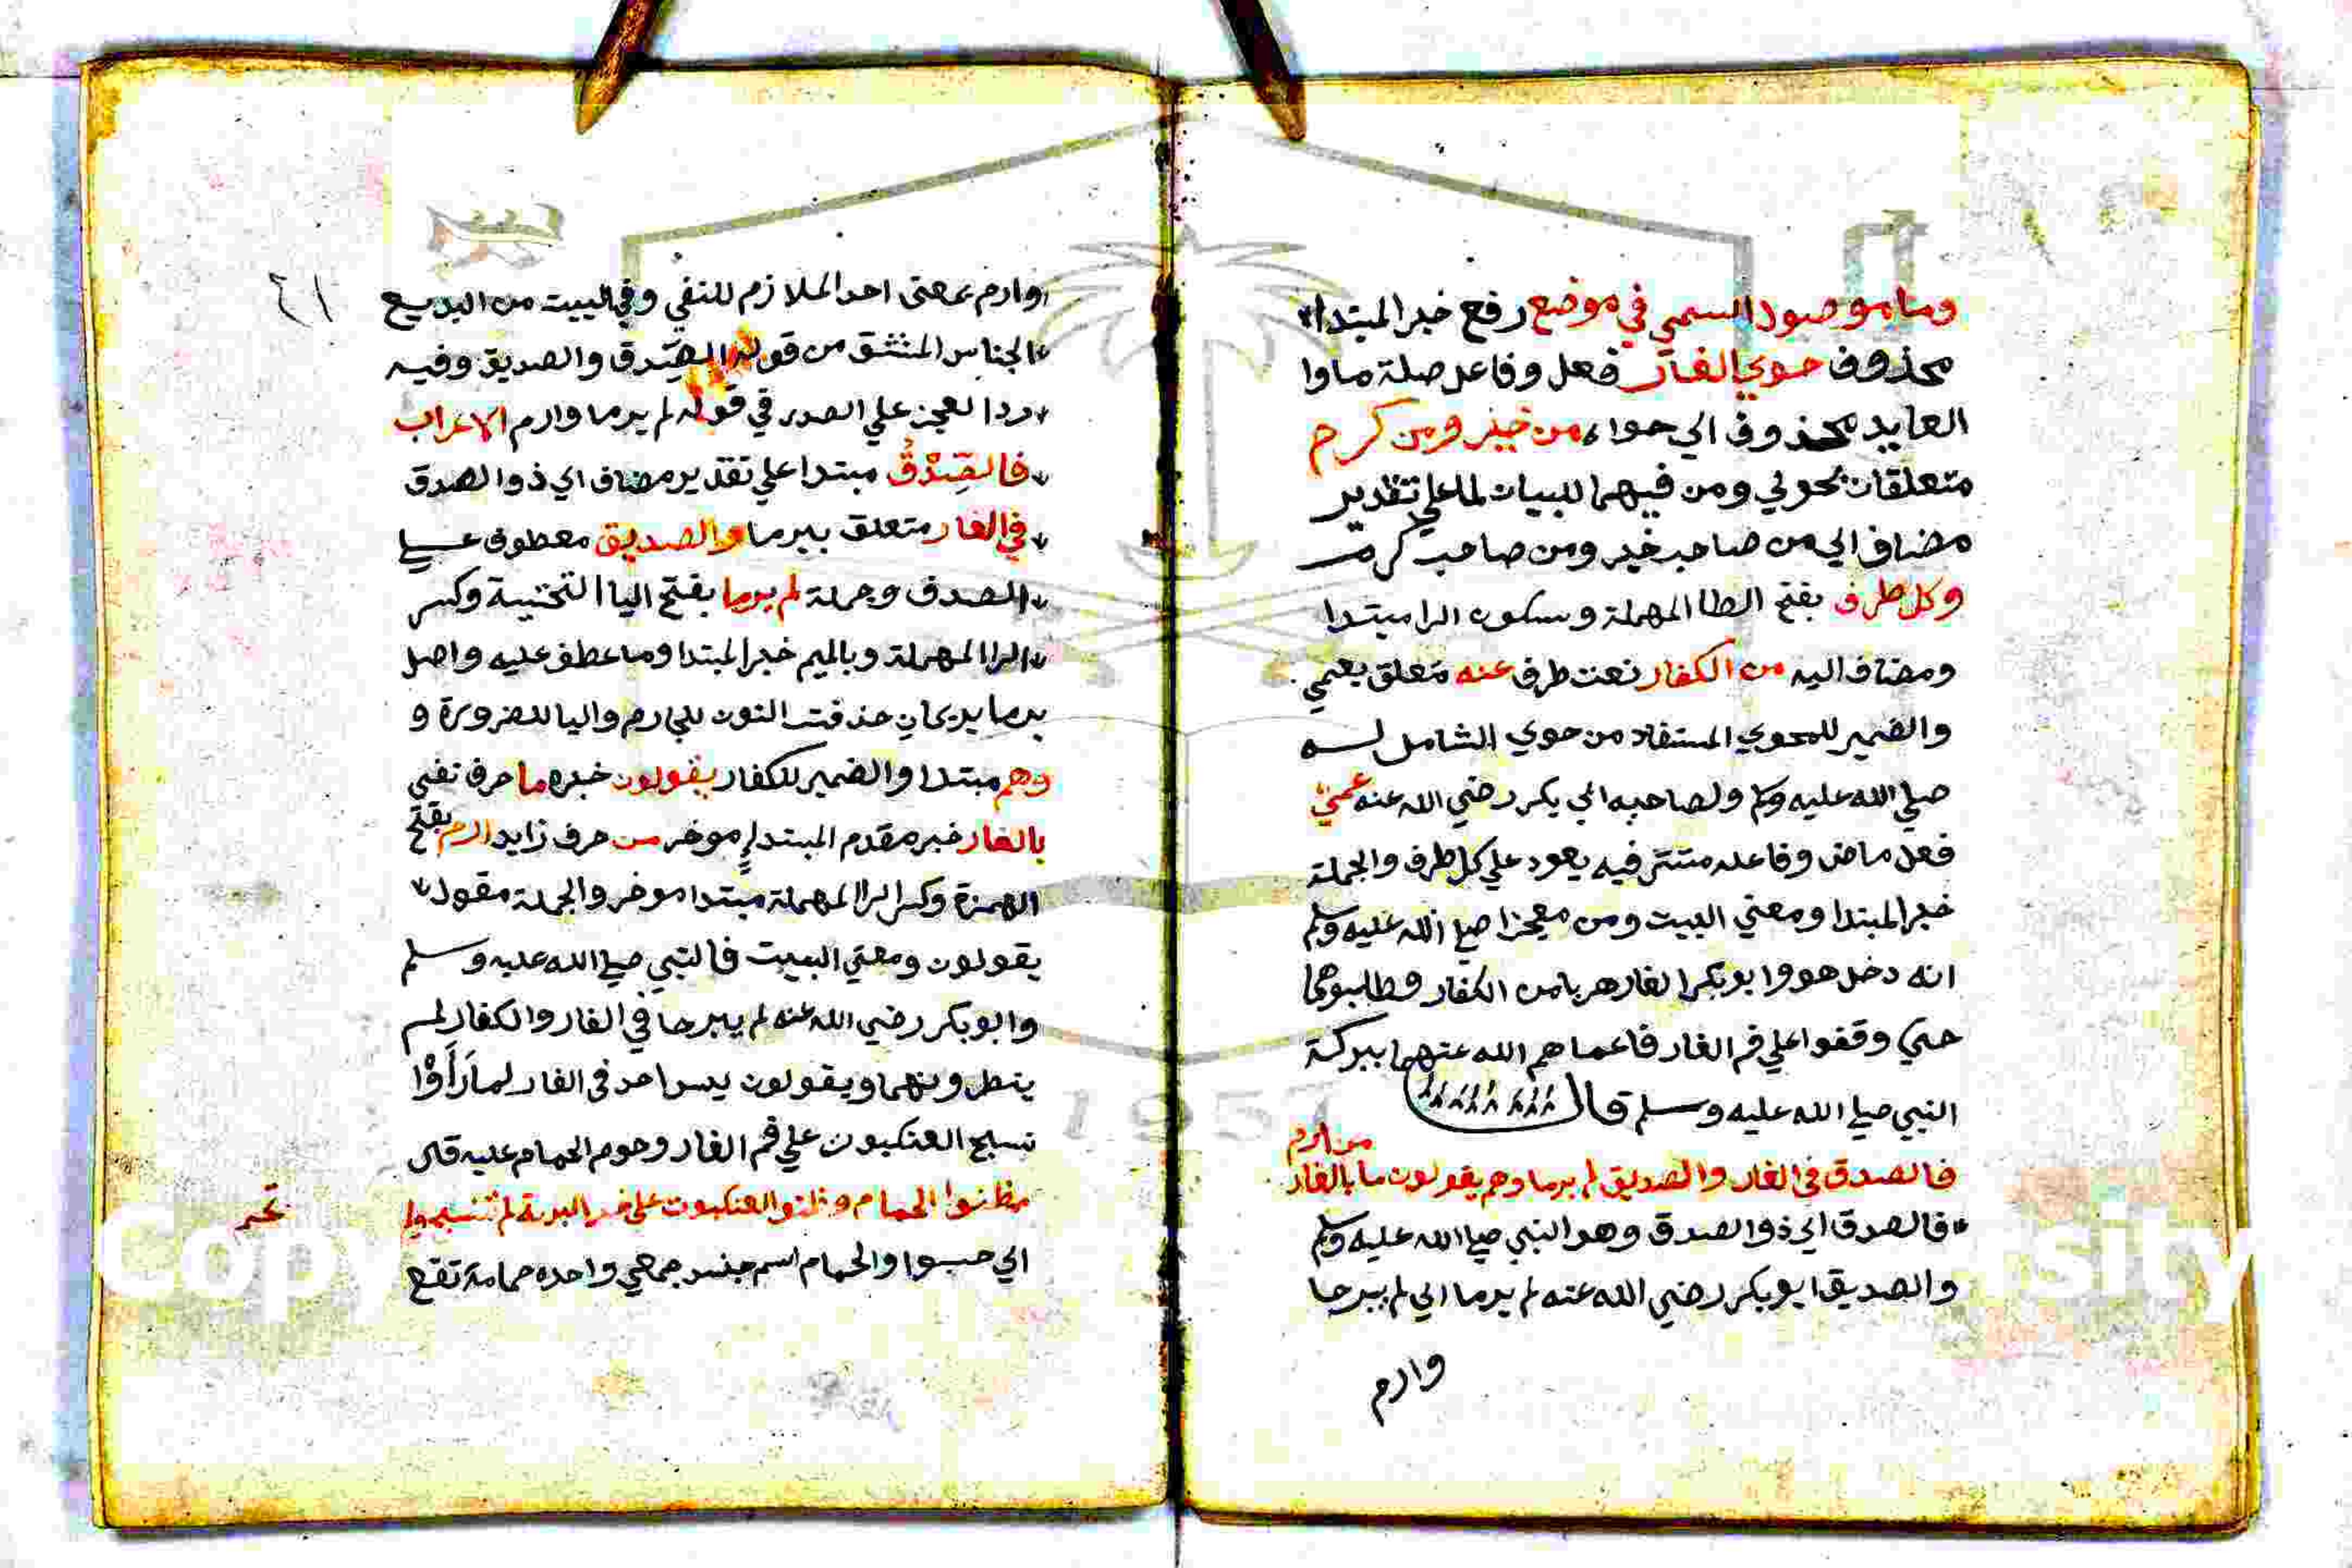 وما موصول اسمي في موضع رفع خبر المبتدا
محذوف حوي الغار فعل وفاعل صلة ما وا
العايد محذوف اي حواه من خير ومن كرم
متعلقان بحوي ومن فيهما للبيان لما علي تقدير
مضاف اي من صاحب خير ومن صاحب كرم
وكل طرف بفتح الطا المهملة وسكون الرا مبتدا
ومضاف اليه من الكفار نعت طرف عنه متعلق بعمي
والضمير للمحوي المستفاد من حوي الشامل له
صلي الله عليه وسلم ولصاحبه ابي بكر رضي الله عنه عمي
فعل ماض وفاعله مستتر فيه يعود علي كل طرف والجملة
خبر المبتدا ومعني البيت ومن معجزا صلي الله عليه وسلم
انه دخل هو وابو بكر الغار هربا من الكفار وطلبوهما
حتي وقفوا علي فم الغار فاعماهم الله عنهما ببركة
النبي صلي الله عليه وسلم قال
فالصدق في الغار والصديق لم يرما وهم يقولون ما بالغار من ارم
فالصدق اي ذو الصدق وهو النبي صلي الله عليه وسلم
والصديق ابو بكر رضي الله عنه لم يرما اي لم يبرحا
وارم
٤١
وارم بمعنى احد الملازم للنفي وفي البيت من البديع
الجناس المشتق من قوله الصدق والصديق وفيه
رد العجز علي الصدر في قوله لم يرما وارم الاعراب
فالصِّدْقُ مبتدا علي تقدير مضاف اي ذو الصدق
في الغار متعلق بيرما والصديق معطوف علي
الصدق وجملة لم يرما بفتح اليا التحتية وكسر
الرا المهملة وبالميم خبر المبتدا وما عطف عليه واصل
يرما يريمان حذفت النون للجازم واليا للضرورة و
وهم مبتدا والضمير للكفار يقولون خبره ما حرف نفي
بالغار خبر مقدم المبتدا موخر من حرف زايد ارم بفتح
الهمزة وكسر الرا المهملة مبتدا موخر والجملة مقول
يقولون ومعني البيت فالنبي صلي الله عليه وسلم
وابو بكر رضي الله عنه لم يبرحا في الغار والكفار لم
ينظرونهما ويقولون ليس احد في الغار لما رَأَوْا
نسج العنكبوت علي فم الغار وحوم الحمام عليه قال
ظنوا الحمام وظنوا العنكبوت على خير البرية لم تنسج ولم
تحم
اي حسبوا والحمام اسم جنس جمعي واحده حمامة تقع